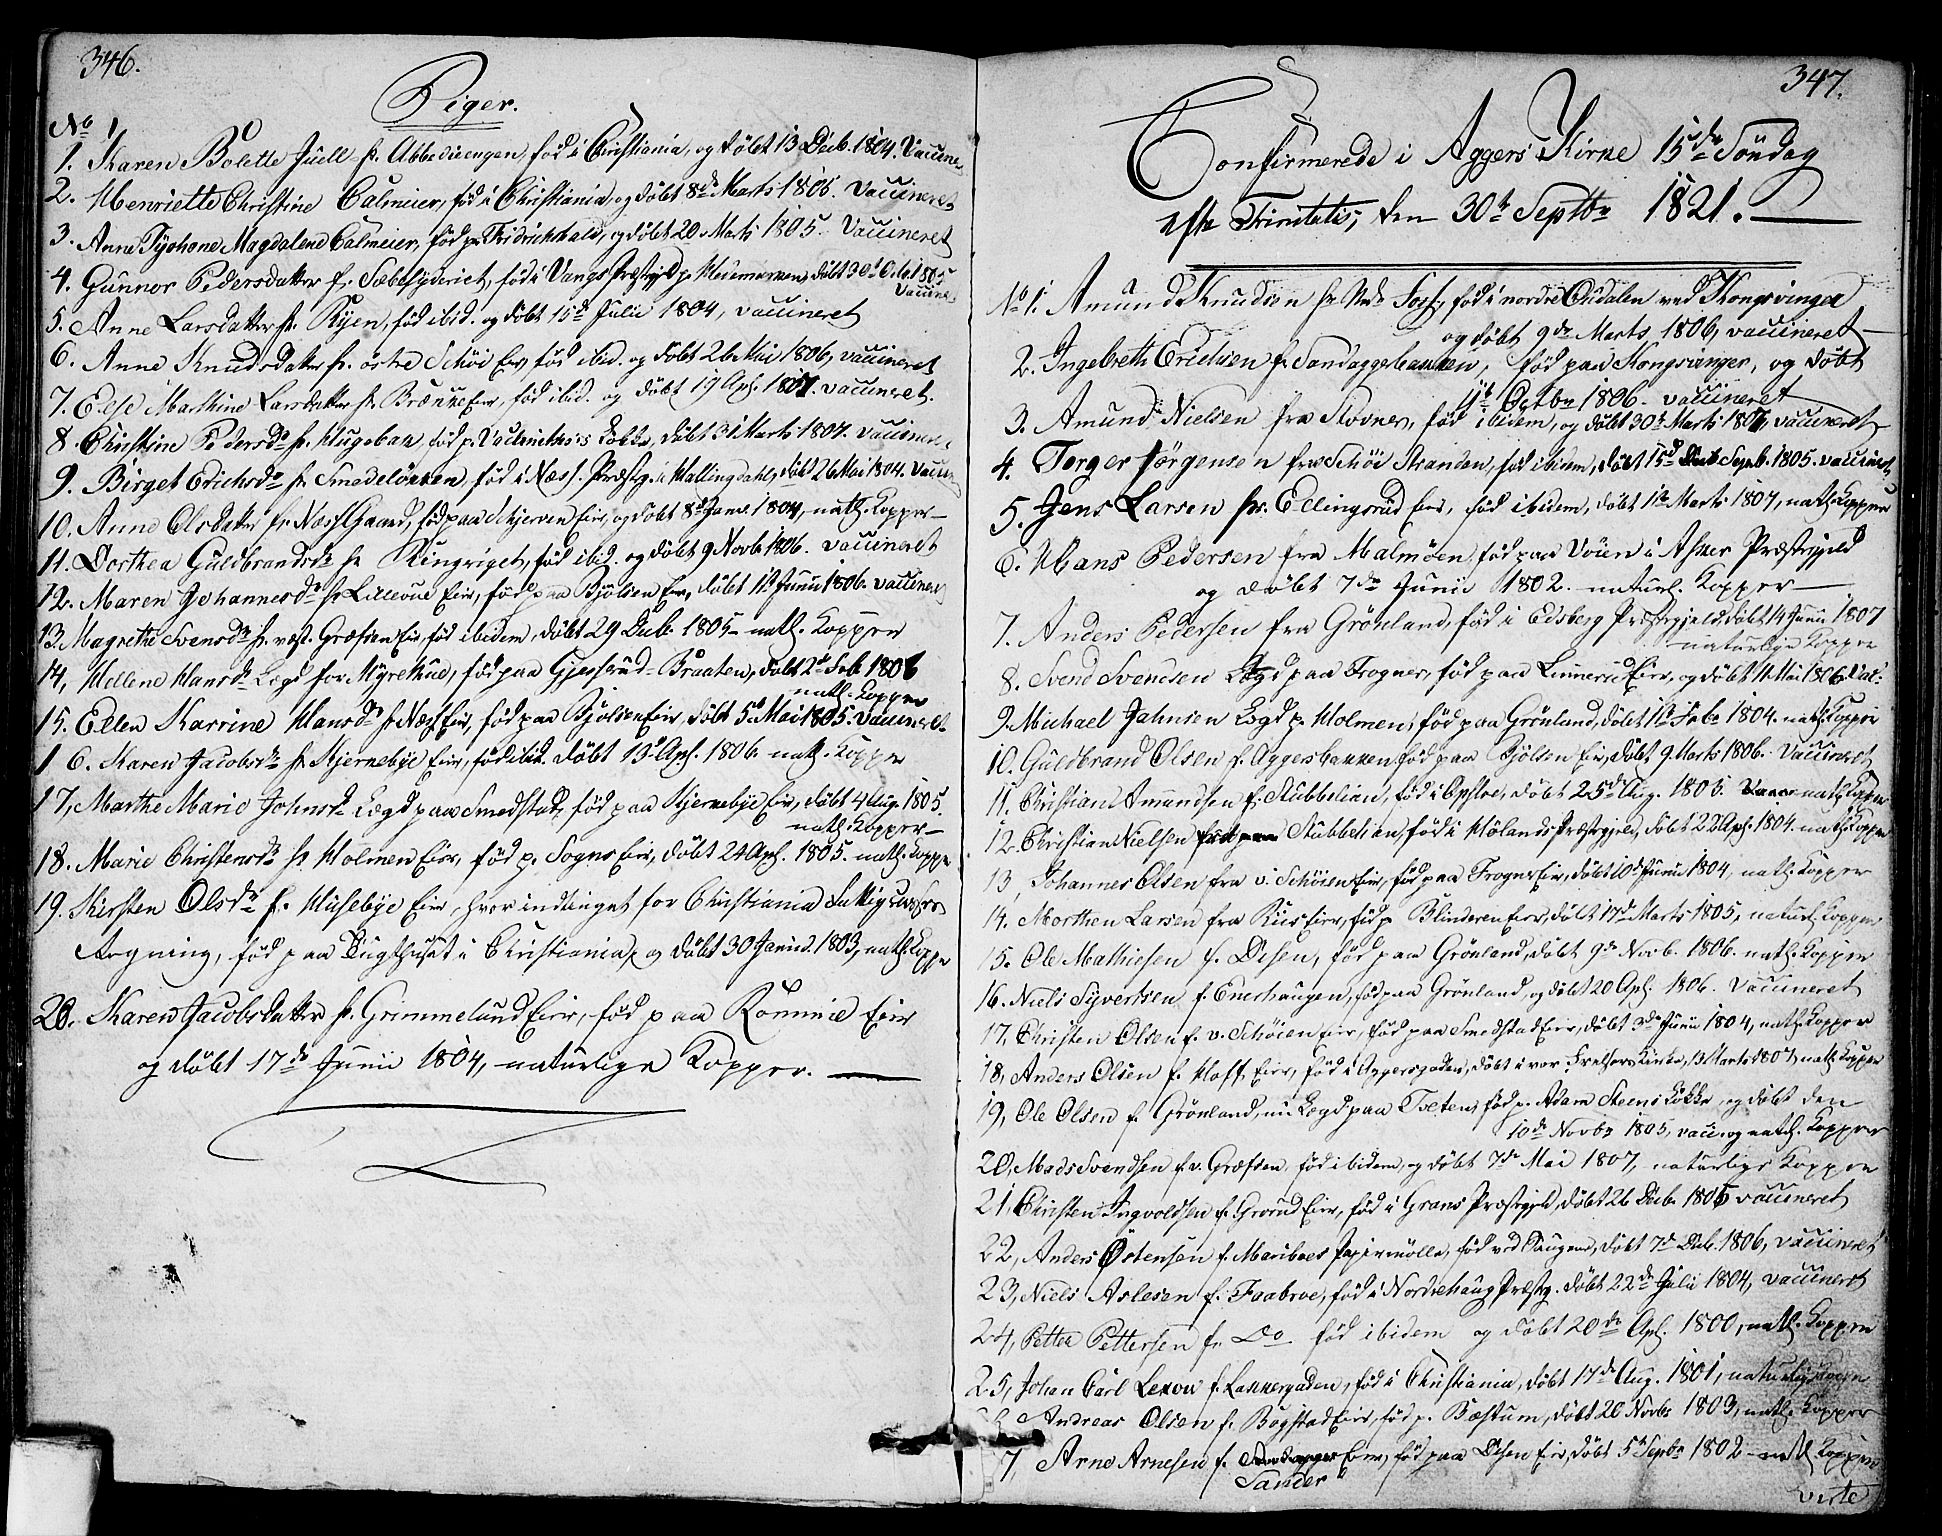 346.
Piger.
No 1
1. Karen Bolette Juell fr. Abbediengen, fød i Christiania, og døbt 13 Decb. 1804. Vaccine
2. Henriette Christine Calmeier, fød i Christiania, og døbt 8de Marts 1806. vaccineret
3. Anne Magdalene Calmeier, fød p. Fridrichshald, og døbt 20 Marts 1805. Vaccineret
4. Gunnor Pedersdatter fr. Sæbesyderiet, fød i Vangs Præstgjeld p. Hedemarken, døbt 30d Octb. 1805
Vaccine
5. Anne Larsdatter fr. Ryen, fød ibid. og døbt 15d Julii 1804, vaccineret
6. Anne Knudsdatter fr. østre Schøi Eier, fød ibid. og døbt 26 Mai 1806, vaccineret
7. Else Marthine Larsdatter fr. Brænne Eier, fød ibid. og døbt 19 Apl. 1807. vaccineret.
8. Christine Pedersdr fr. Hugebak, fød p. Løkke, døbt 31 Marts 1807. vaccineret
9. Birget Erichsdr fr. Smedeløkken, fød i Næss Præstg. i Hallingdahl, døbt 26 Mai 1804. Vaccin
10. Anne Olsdatter fr. Næss Gaard, fød paa Schjerven Eier, og døbt 8d Janr. 1804, nath. Kopper
11. Dorthea Guldbrandsdr fr. Ringriget, fød ibid. og døbt 9 Novb. 1806. vaccineret
12. Maren Johannesdr fr. Lillevue Eier, fød paa Bjølsen Eier, døbt 1te Junii 1806. vaccineret
13. Magrethe Svensdr fr. væst. Græfsen Eier, fød ibidem, døbt 29 Decb. 1805 nath. Kopper
14, Hellene Hansdr Lægd for Myrehue, fød paa Gjessrud-Braaten, døbt 2d Feb. 1806
nath. Kopper
15. Ellen Karrine Hansdr fr. Næss Eier, fød paa Bjølsen Eier, døbt 5d Mai 1805. vaccineret.
16. Karen Jacobsdr fr. Kjernebye Eier, fød ibid. døbt 13d Apl. 1806 nath. Kopper
17, Marthe Marie Johnsdr Lægd paa Smedstad, fød paa Kjernebye Eier, døbt 4 Aug. 1805.
nath. Kopper
18. Marie Christensdr fr. Holmen Eier, fød p. Sogns Eier, døbt 24 Apl. 1805. nath. Koppe
19. Kirsten Olsdr f. Husebye Eier, hvor indtinget for Christiania Fattigvæsens
Regning, fød paa Tugthuset i Christiania, og døbt 30 Junii 1803, nath. Koppe
20. Karen Jacobsdatter fr. Grimmelund Eier, fød paa Rommie Eier
og døbt 17de Junii 1804, naturlige Kopper.
347.
Confirmerede i Aggers Kirke 15de Søndag
efter Trinitatis, den 30te Septbr 1821.
No 1. Amund Knudsen fr. Foss, fød i nordre Oudalen ved Kongsvinger
og døbt 9de Marts 1806, vaccineret
2. Ingebreth Erichsen fr. Sandaggerbakken, fød paa Kongsvinger, og døbt
11te Octbr 1806. vaccineret
3. Amund Nielsen fra Stovner, fød ibidem, og døbt 30te Marts 1807, vaccineret
4. Torger Jørgensen fra Schøi Stranden, fød ibidem, døbt 15d Septb. 1805. vaccineret
5. Jens Larsen fr. Ellingsrud Eier, fød ibidem, døbt 1te Marts 1807, nath. Kopper
6. Hans Pedersen fra Malmøen, fød paa Vøien i Asker Præstgjeld
og døbt 7de Junii 1802. naturl. Kopper
7. Anders Pedersen fra Grønland, fød i Edsberg Præstegjeld, døbt 14 Junii 1807
naturlige Kopper
8. Svend Svendsen Lægd paa Frogner, fød paa Linnerud Eier, og døbt 11 Mai 1806
9. Michael Jahnsen Lægd p. Holmen, fød paa Grønland, døbt 1te Febr. 1804. nath. Kopper
10. Guldbrand Olsen f. Aggersbakken fød paa Bjølsen Eier, døbt 9 Marts 1806. Vaccineret
11. Christian Amundsen f. Stubbelian, fød i Opsloe, døbt 25d Aug. 1803. nath. Kopper
12. Christian Nielsen Stubbelian, fød i Hølands Præstgjeld, døbt 22 Apl. 1804. nath. Kopper
13, Johannes Olsen fra v. Schøien Eier, fød paa Frogner Eier, døbt 10d Junii 1804, nath. Kopper
14. Morthen Larsen fra Riis Eier, fød p. Blinderen Eier, døbt 17de Marts 1805, naturl. Kopper
15. Ole Mathiesen f. Disen, fød paa Grønland, døbt 9de Novb. 1806. nath. Kopper
16. Niels Syvertsen f. Enerhaugen, fød paa Grønland, og døbt 20 Apl. 1806. Vaccineret
17, Christen Olsen f. v. Schøien Eier, fød paa Smedstad Eier, døbt 3de Junii 1804, nath. Kopper
18, Anders Olsen f. Hoff Eier, fød i Aggersgaden, døbt i vor Frelsers Kirke, 13 Marts 1807, nath. Kopper
19, Ole Olsen f. Grønland, nu Lægd paa Tveten, fød p. Adam Steens Løkke, og døbt den
10de Novbr 1805, vacc. og nath. Kopper
20, Mads Svendsen f. v. Græfsen, fød ibidem, og døbt 7de Mai 1807, naturlige Kopper
21, Christen Ingvoldsen f. Grorud Eier, fød i Grans Præstgjeld, døbt 26 Decb. 1805 vaccineret
22, Anders Østensen f. Mariboes Papirmølle, fød ved Taugene, døbt 7d Decb. 1806, vaccineret
23, Niels Aslesen f. Faabroe, fød i Nordrehaug Præstg. døbt 22de Julii 1804, vaccineret
24, Petter Pettersen f. Do fød ibidem og døbt 20de Apl. 1800, nath. Kopper
25, Johan Carl Lexow f. Lakkergaden, fød i Christiania, døbt 17de Aug. 1801, naturlige Kopper
Andreas Olsen f. Bogstad Eier, fød p. Bæstum, døbt 20 Novbr 1803, nath. Kopper
7, Arne Arnesen f. Eier, fød paa Disen Eier, døbt 5te Septbr 1802 nath. Kopper
Sander
verte